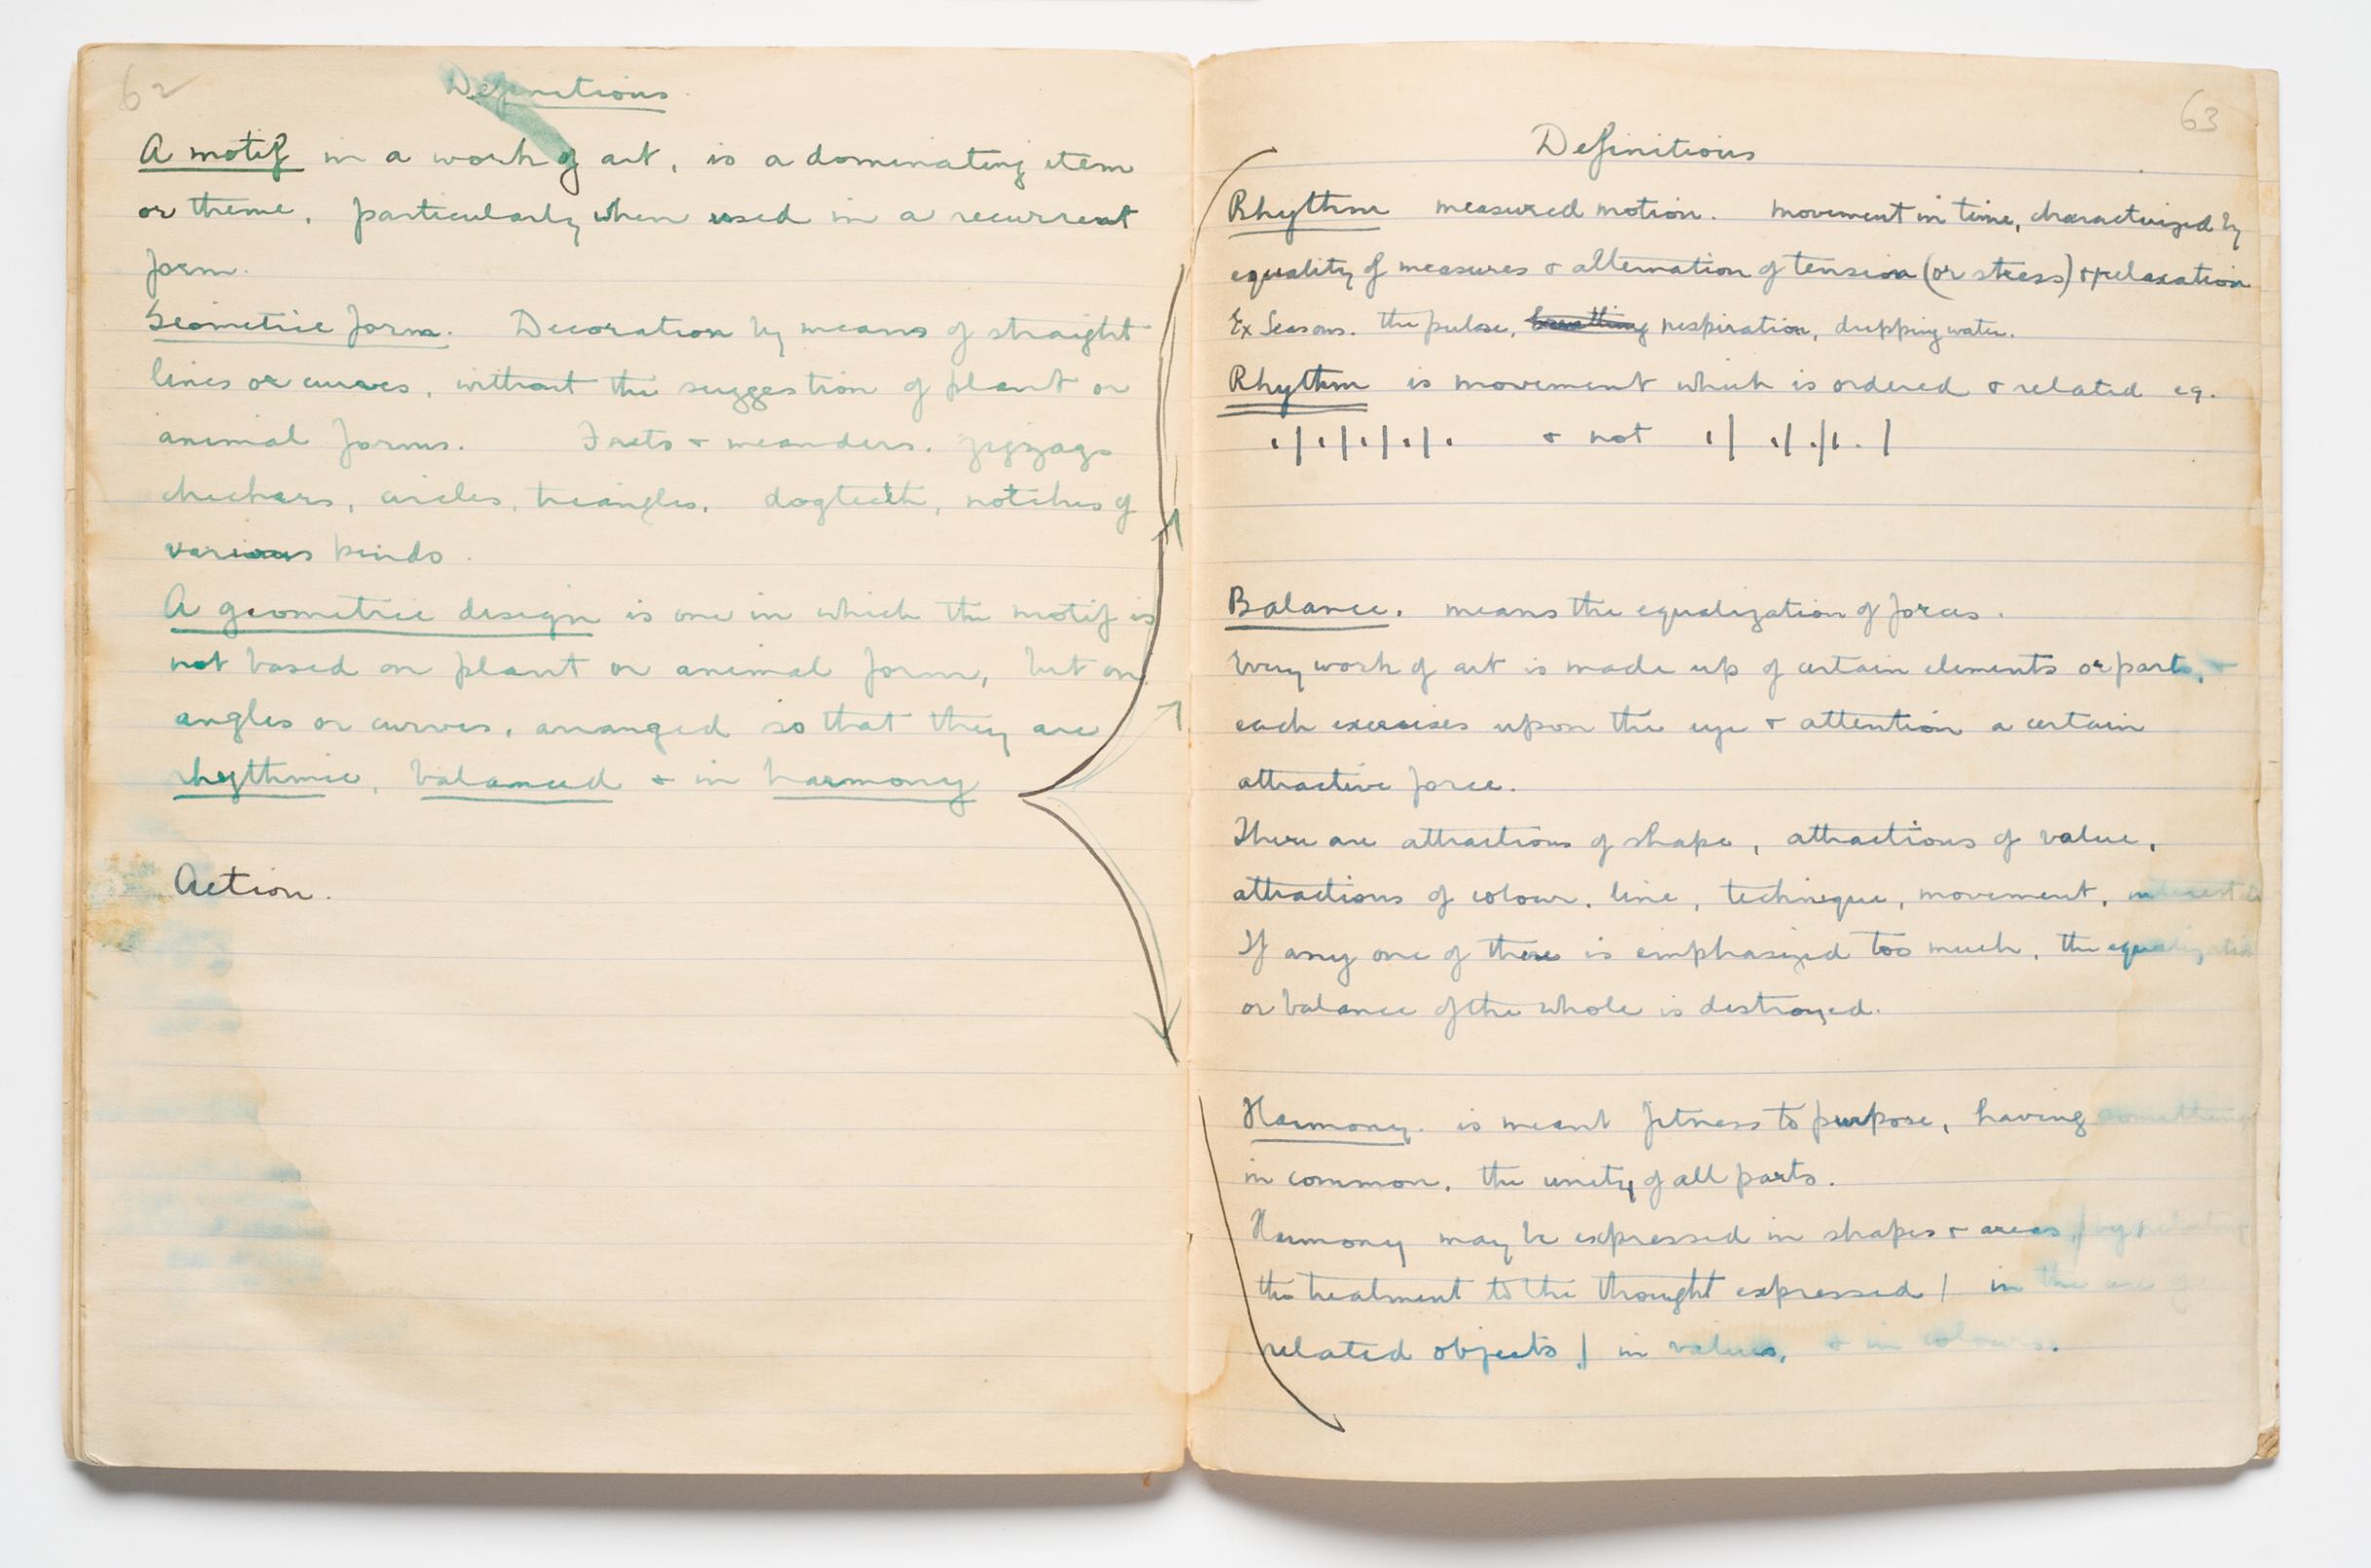 62
Definitions
A motif in a work of art, is a dominating item
or theme, particularly when used in a recurrent
form.
Geometric form. Decoration by means of straight
lines or curves, without the suggestion of plant or
animal forms. Frets + meanders. zigzags
checkers, circles, triangles, dogteeth, notches of
various kinds.
A geometric design is one in which the motif is
not based on plant or animal form, but on
angles or curves, arranged so that they are
rhythmic, balanced + in harmony
Action.
63
Definitions
Rhythm measured motion. movement in time, characterized by
equality of measures + alternation of tension (or stress) + relaxation
Ex Seasons. the pulse, breathing respiration, dripping water.
Rhythm is movement which is ordered + related eg.
+ not
Balance. means the equalization of forces.
Every work of art is made up of certain elements or parts, +
each exercises upon the eye + attention a certain
attractive force.
There are attractions of shape, attractions of value,
attractions of colour, line, technique, movement, interest
If any one of these is emphasized too much, the equalization
or balance of the whole is destroyed.
Harmony. is meant fitness to purpose, having something
in common, the unity of all parts.
Harmony may be expressed in shapes + areas / by relating
the treatment to the thought expressed / in the use of
related objects / in values, + in colours.